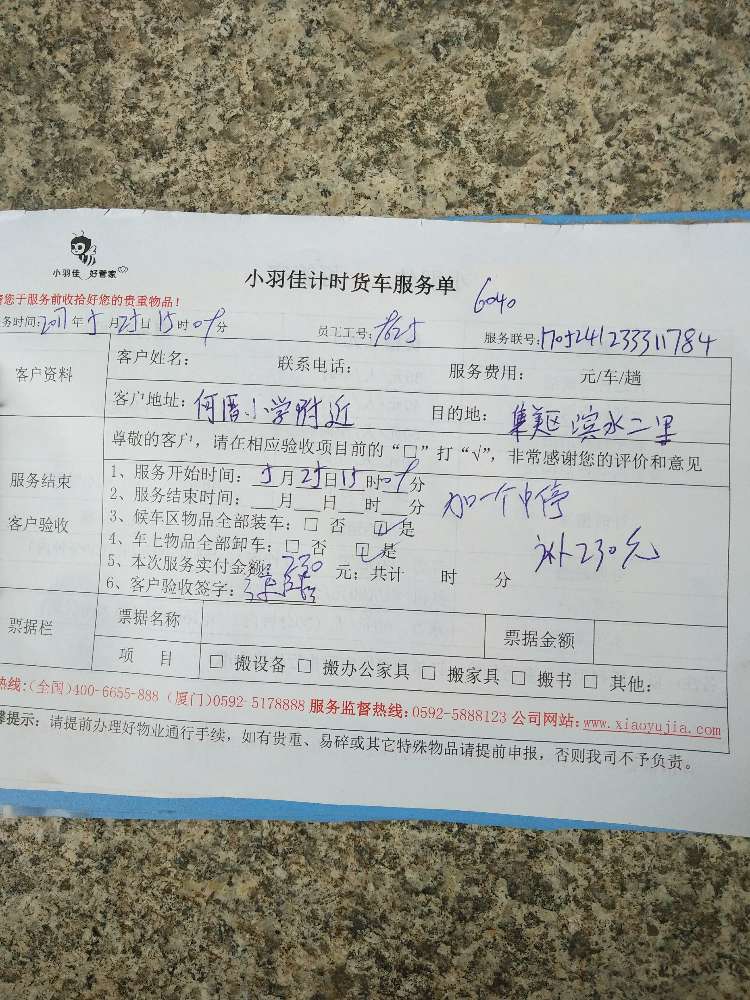 小羽佳 好管家
小羽佳计时货车服务单
6040
您于服务前收拾好您的贵重物品!
务时间:2017年5月25日15时09分 员工工号: 服务联号:1705241233311784
客户资料
客户姓名: 联系电话: 服务费用: 元/车/趟
客户地址:何厝小学附近 目的地:集美区滨水二里
尊敬的客户,请在相应验收项目前的“□”打“√”,非常感谢您的评价和意见
服务结束
客户验收
1、服务开始时间:5月25日15时09分
2、服务结束时间:__月__日__时__分
加一个中停
3、候车区物品全部装车:□ 否 ☑ 是
4、车上物品全部卸车:□ 否 ☑ 是
补230元
5、本次服务实付金额:230元;共计 时 分
6、客户验收签字:
票据栏
票据名称 票据金额
项 目 □ 搬设备 □ 搬办公家具 □ 搬家具 □ 搬书 □ 其他:
热线:(全国)400-6655-888 (厦门)0592-5178888 服务监督热线:0592-5888123 公司网站:www.xiaoyujia.com
提示:请提前办理好物业通行手续,如有贵重、易碎或其它特殊物品请提前申报,否则我司不予负责。